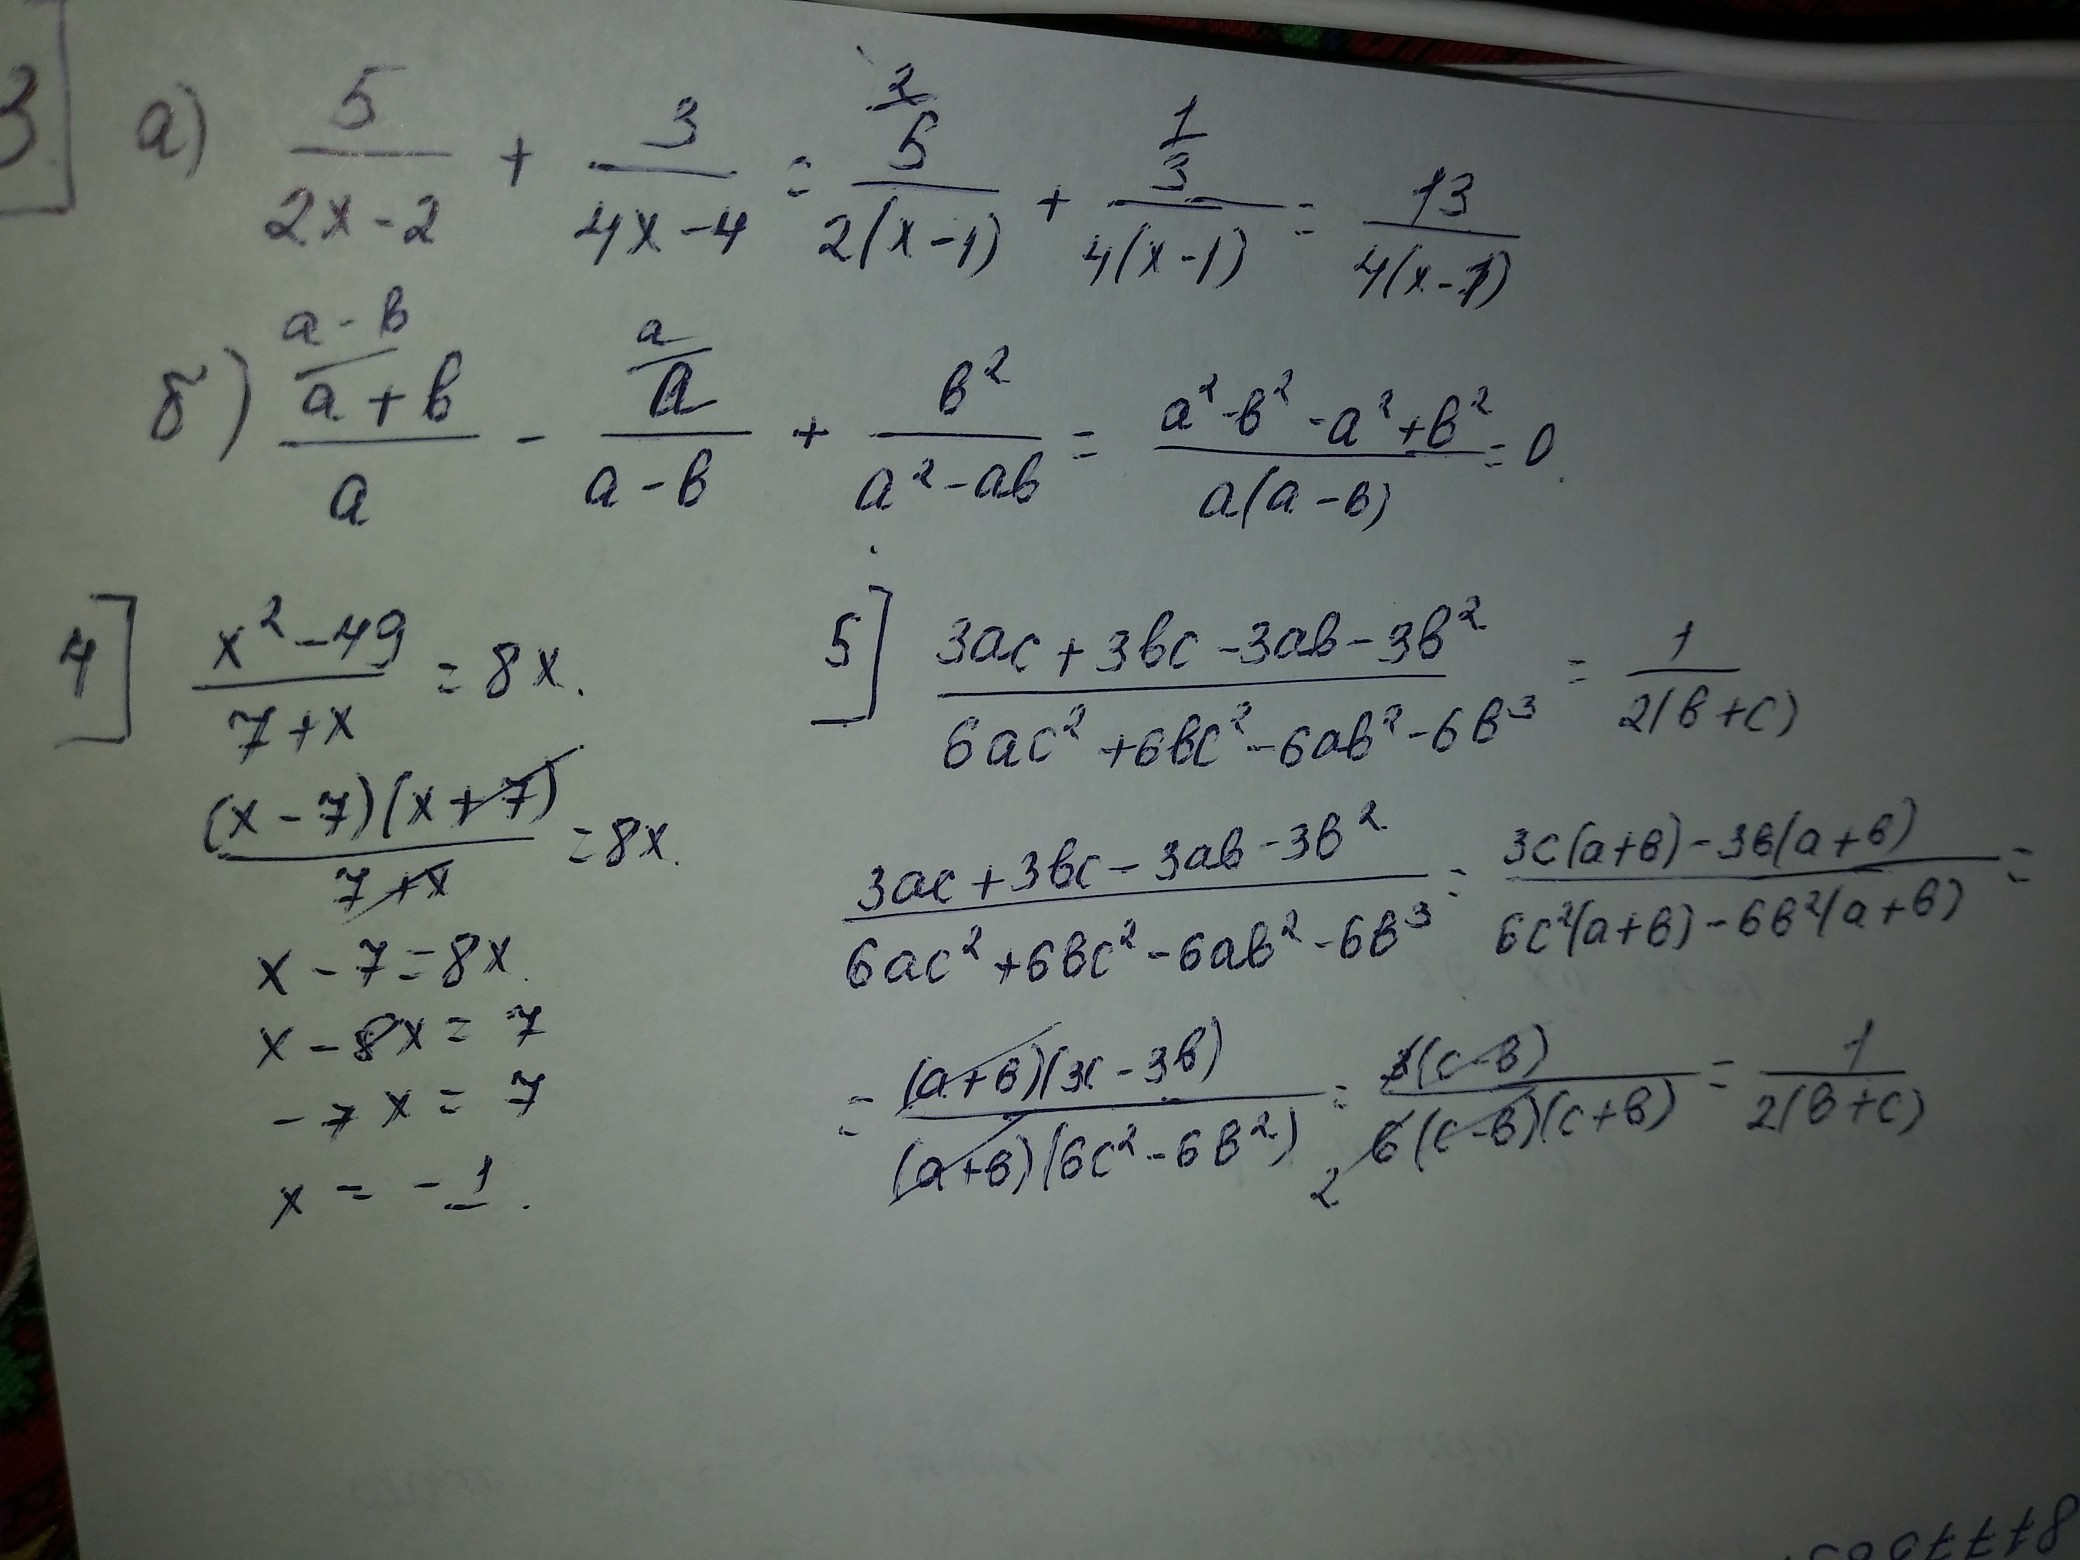 3] а) 5/(2x-2) + 3/(4x-4) = 2/ 5/(2(x-1)) + 1/ 3/(4(x-1)) = 13/(4(x-1))
б) a-в/ (a+в)/a - a/ a/(a-в) + в²/(a²-aв) = (a²-в²-a²+в²)/(a(a-в)) = 0.
4] (x²-49)/(7+x) = 8x.
(x-7)(x+7)/(7+x) = 8x.
x-7=8x.
x-8x=7
-7x=7
x=-1.
5] (3ac+3вc-3aв-3в²)/(6ac²+6вc²-6aв²-6в³) = 1/(2(в+c))
(3ac+3вc-3aв-3в²)/(6ac²+6вc²-6aв²-6в³) = (3c(a+в)-3в(a+в))/(6c²(a+в)-6в²(a+в)) =
= (a+в)(3c-3в)/((a+в)(6c²-6в²)) = 3(c-в)/(6(c-в)(c+в)) 2 = 1/(2(в+c))